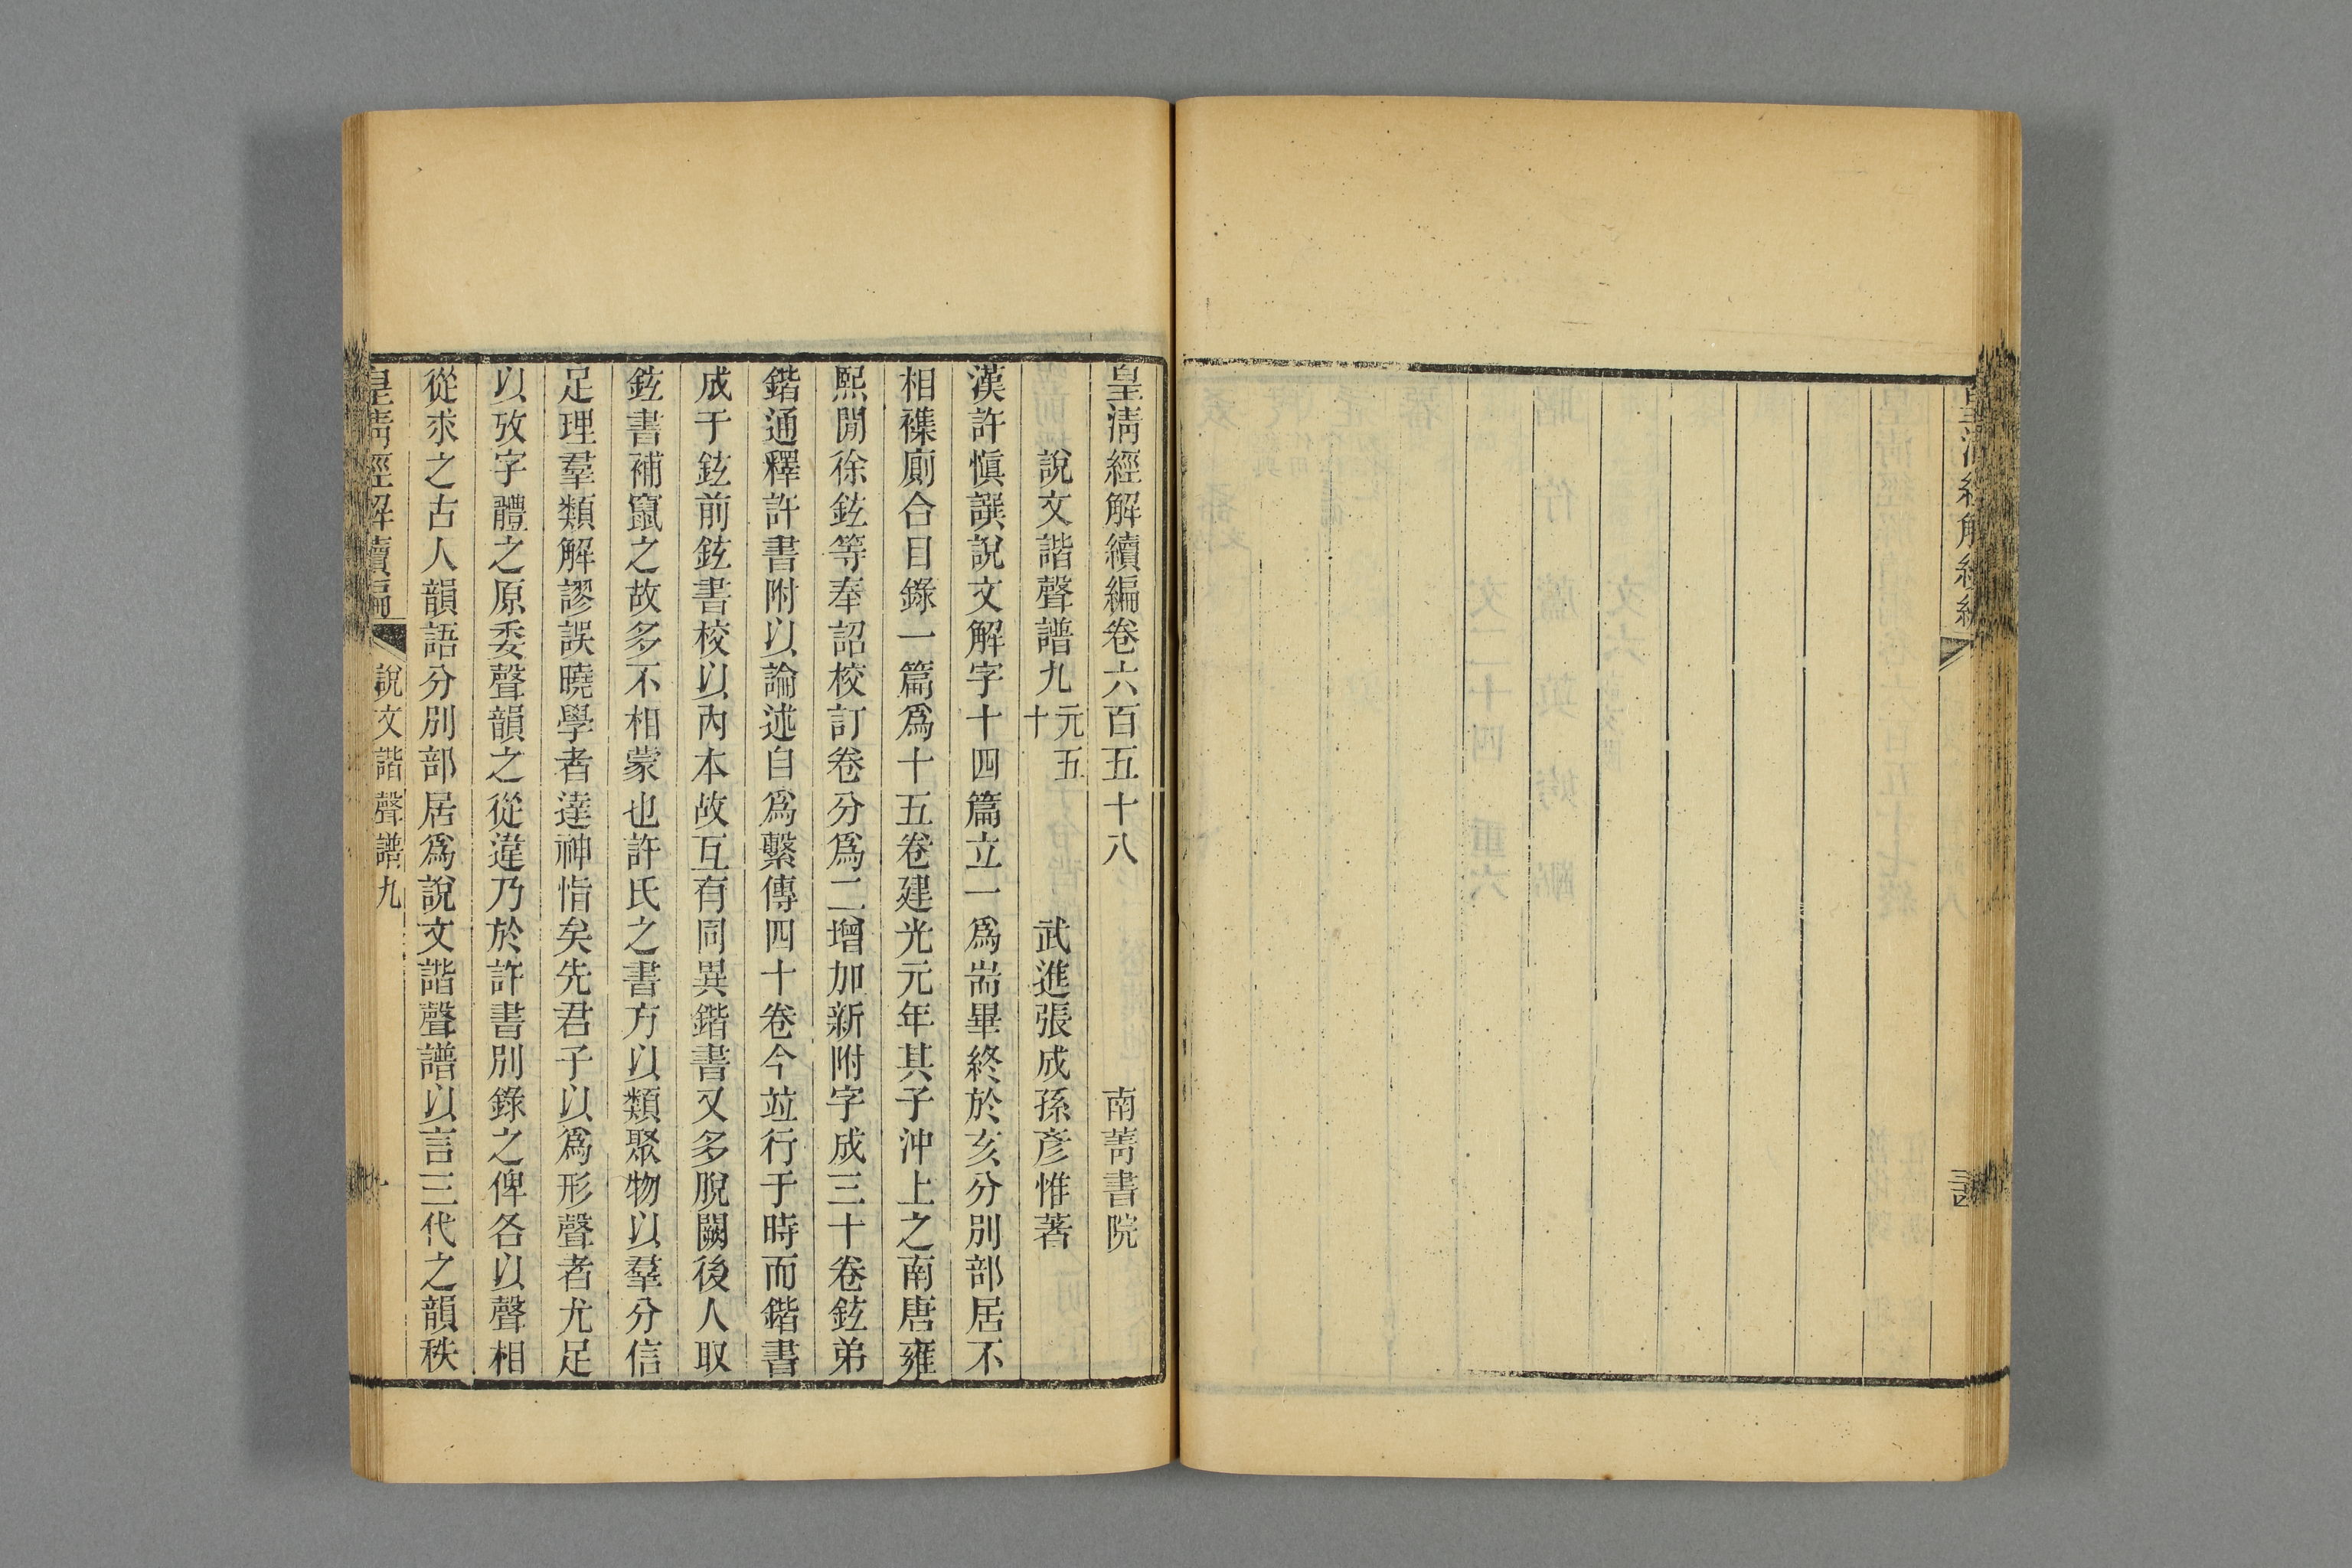 皇清經解續編
皇清經解續編卷六百五十八 南菁書院
說文諧聲譜九 元五十 武進張成孫彥惟著
漢許愼譔說文解字十四篇立一爲耑畢終於亥分別部居不
相襍廁合目錄一篇爲十五卷建光元年其子沖上之南唐雍
熙閒徐鉉等奉詔校訂卷分爲二增加新附字成三十卷鉉弟
鍇通釋許書附以論述自爲繫傳四十卷今竝行于時而鍇書
成于鉉前鉉書校以內本故互有同異鍇書又多脫闕後人取
鉉書補竄之故多不相蒙也許氏之書方以類聚物以羣分信
足理羣類解謬誤曉學者達神恉矣先君子以爲形聲者尤足
以攷字體之原委聲韻之從違乃於許書別錄之俾各以聲相
從求之古人韻語分別部居爲說文諧聲譜以言三代之韻秩
皇清經解續編 說文諧聲譜九 一